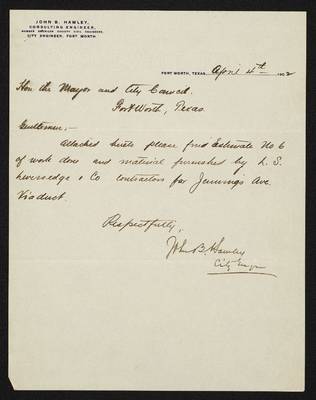 JOHN B. HAWLEY,
CONSULTING ENGINEER,
MEMBER AMERICAN SOCIETY CIVIL ENGINEERS,
CITY ENGINEER, FORT WORTH.
FORT WORTH, TEXAS, April 4th 1902
Hon the Mayor and City Council.
Fort Worth, Texas.
Gentlemen:-
Attached hereto please find Estimate No 6
of work done and material furnished by L. S.
Leversedge & Co contractors for Jennings Ave.
Viaduct.
Respectfully,
John B. Hawley
City Engr